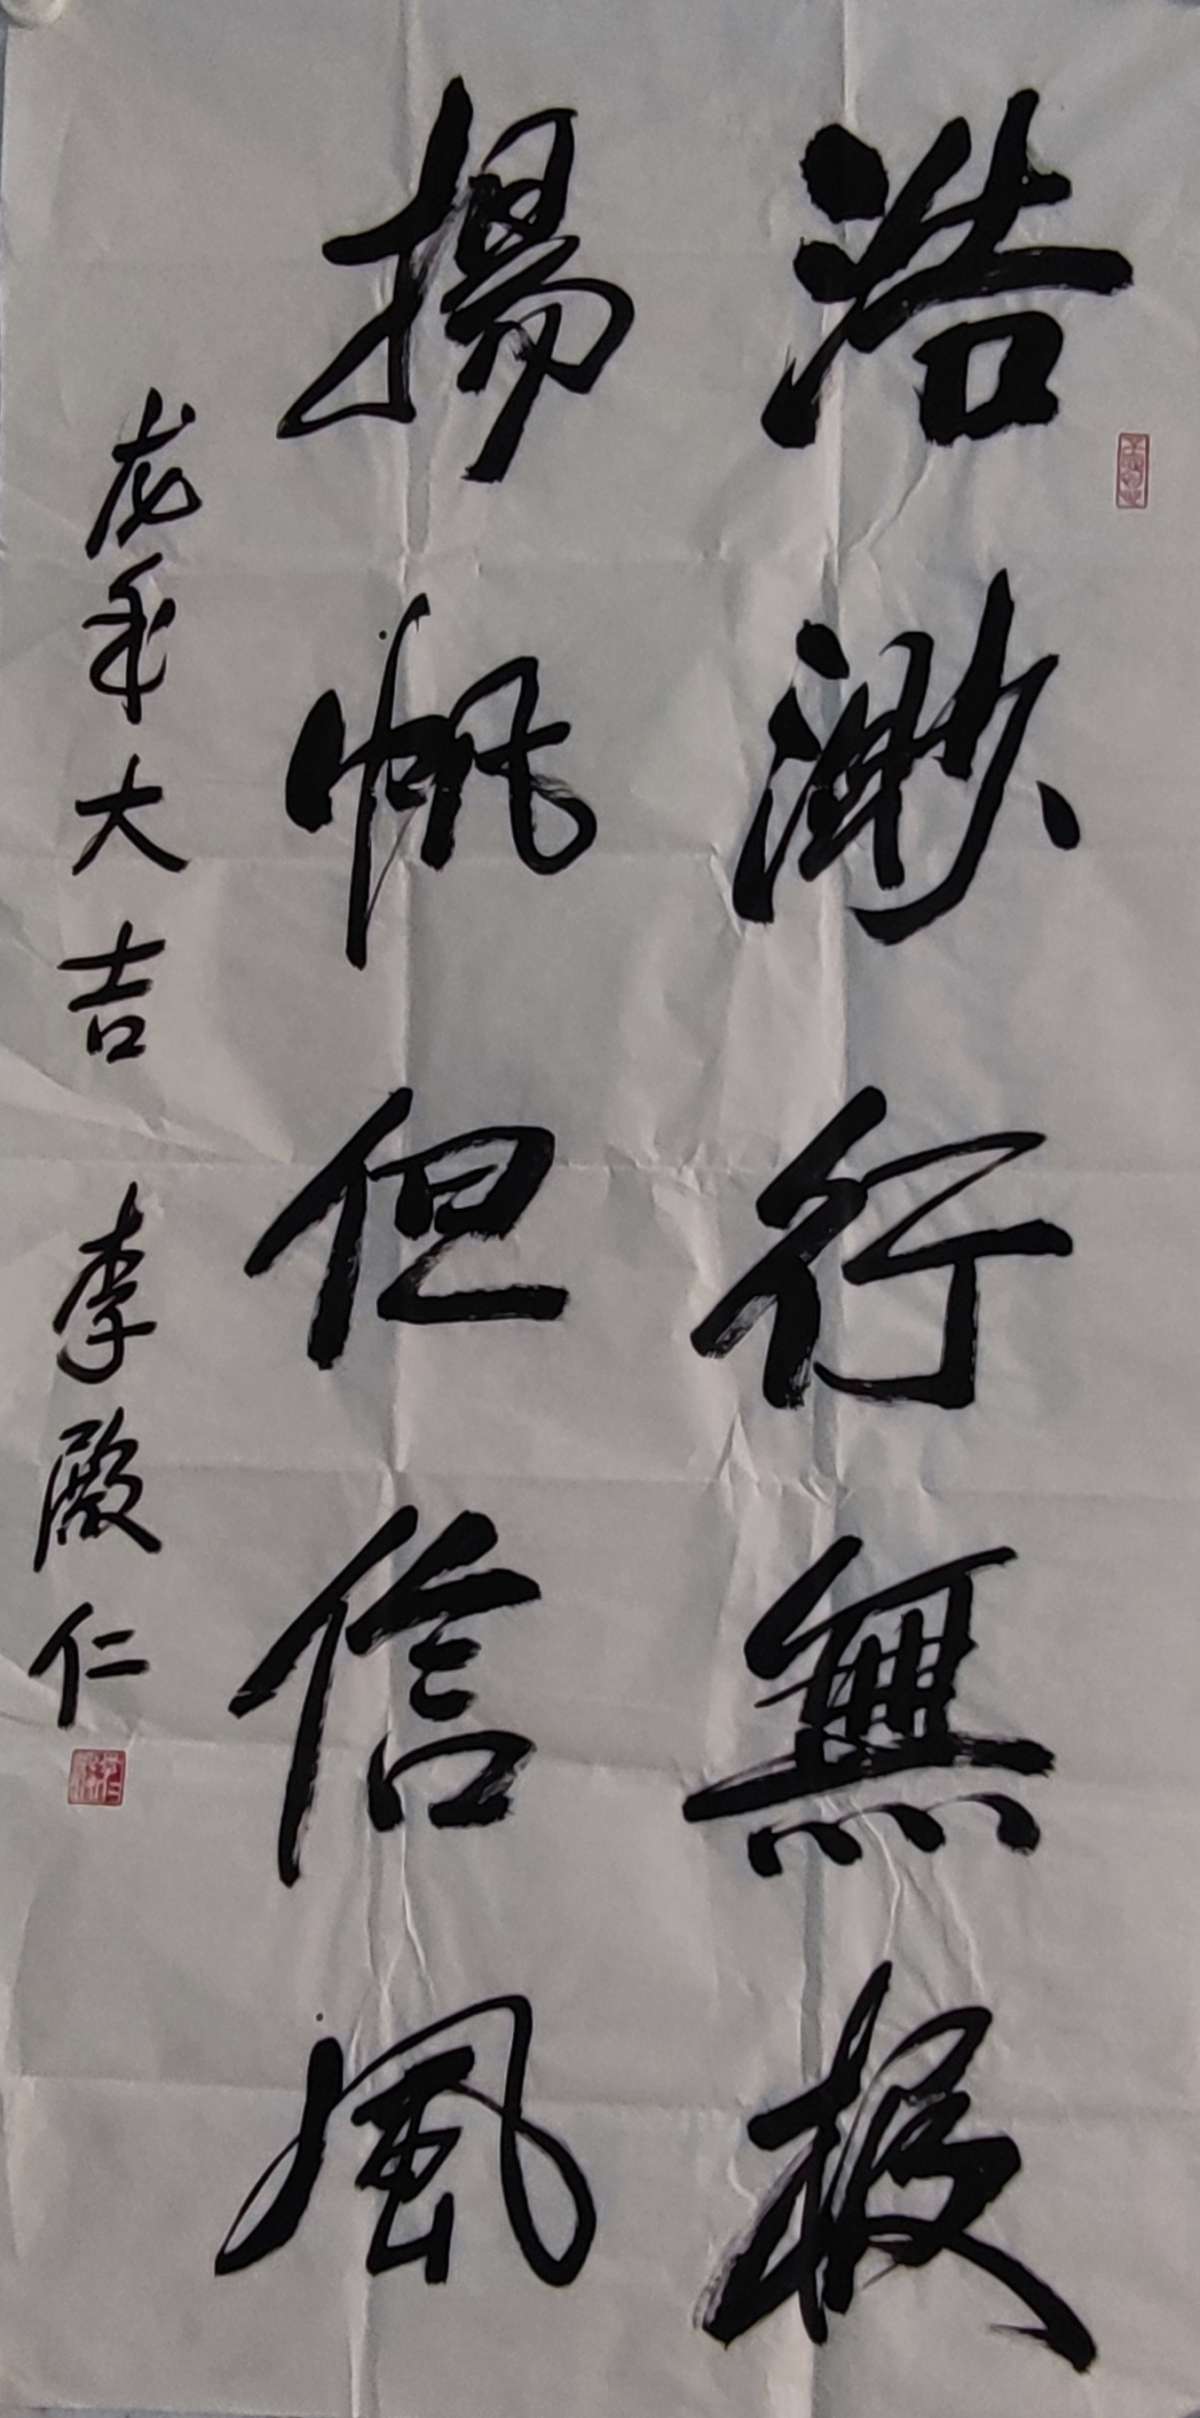 浩渺行無极
揚帆但信風
龙年大吉 李殿仁